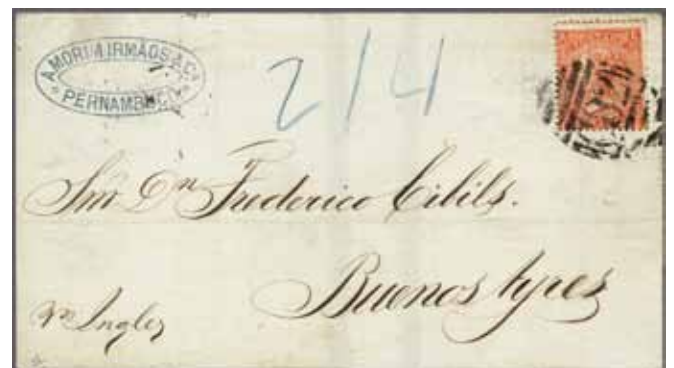 AMORIM IRMÃOS & Cª
PERNAMBUCO
2/4
Snr Dn Frederico Cibils.
Buenos Ayres
pr Inglez